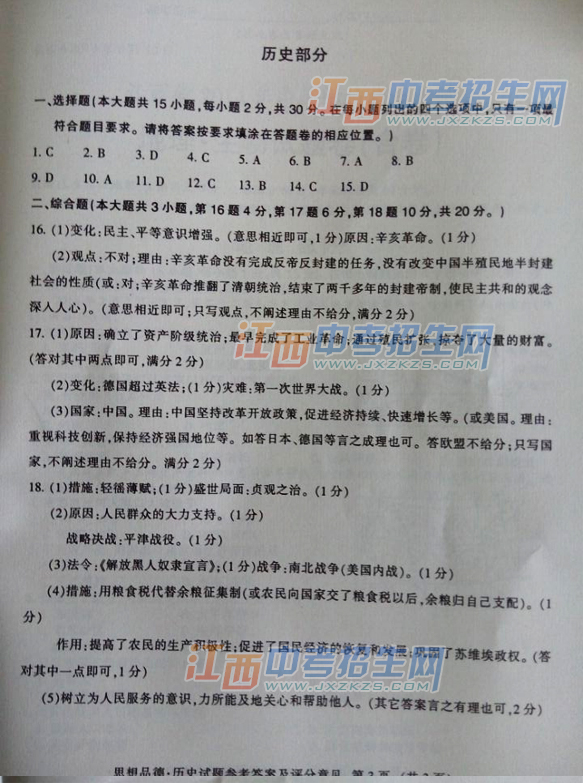 历史部分
一、选择题(本大题共15小题,每小题2分,共30分。在每小题列出的四个选项中,只有一项最
符合题目要求。请将答案按要求填涂在答题卷的相应位置。)
1. C 2. B 3. D 4. C 5. A 6. B 7. A 8. B
9. D 10. A 11. D 12. C 13. B 14. C 15. D
二、综合题(本大题共3小题,第16题4分,第17题6分,第18题10分,共20分。)
16. (1)变化:民主、平等意识增强。(意思相近即可,1分)原因:辛亥革命。(1分)
(2)观点:不对;理由:辛亥革命没有完成反帝反封建的任务,没有改变中国半殖民地半封建
社会的性质(或:对;辛亥革命推翻了清朝统治,结束了两千多年的封建帝制,使民主共和的观念
深入人心)。(意思相近即可;只写观点,不阐述理由不给分,满分2分)
17. (1)原因:确立了资产阶级统治;最早完成了工业革命;通过殖民扩张、掠夺了大量的财富。
(答对其中两点即可,满分2分)
(2)变化:德国超过英法;(1分)灾难:第一次世界大战。(1分)
(3)国家:中国。理由:中国坚持改革开放政策,促进经济持续、快速增长等。(或美国。理由:
重视科技创新,保持经济强国地位等。如答日本、德国等言之成理也可。答欧盟不给分;只写国
家,不阐述理由不给分。满分2分)
18. (1)措施:轻徭薄赋;(1分)盛世局面:贞观之治。(1分)
(2)原因:人民群众的大力支持。(1分)
战略决战:平津战役。(1分)
(3)法令:《解放黑人奴隶宣言》;(1分)战争:南北战争(美国内战)。(1分)
(4)措施:用粮食税代替余粮征集制(或农民向国家交了粮食税以后,余粮归自己支配)。(1
分)
作用:提高了农民的生产积极性;促进了国民经济的恢复和发展;巩固了苏维埃政权。(答
对其中一点即可,1分)
(5)树立为人民服务的意识,力所能及地关心和帮助他人。(其它答案言之有理也可,2分)
思想品德·历史试题参考答案及评分意见 第3页 (共3页)
江西中考招生网
WWW.JXZKZS.COM
江西中考招生网
WWW.JXZKZS.COM
江西中考招生网
WWW.JXZKZS.COM